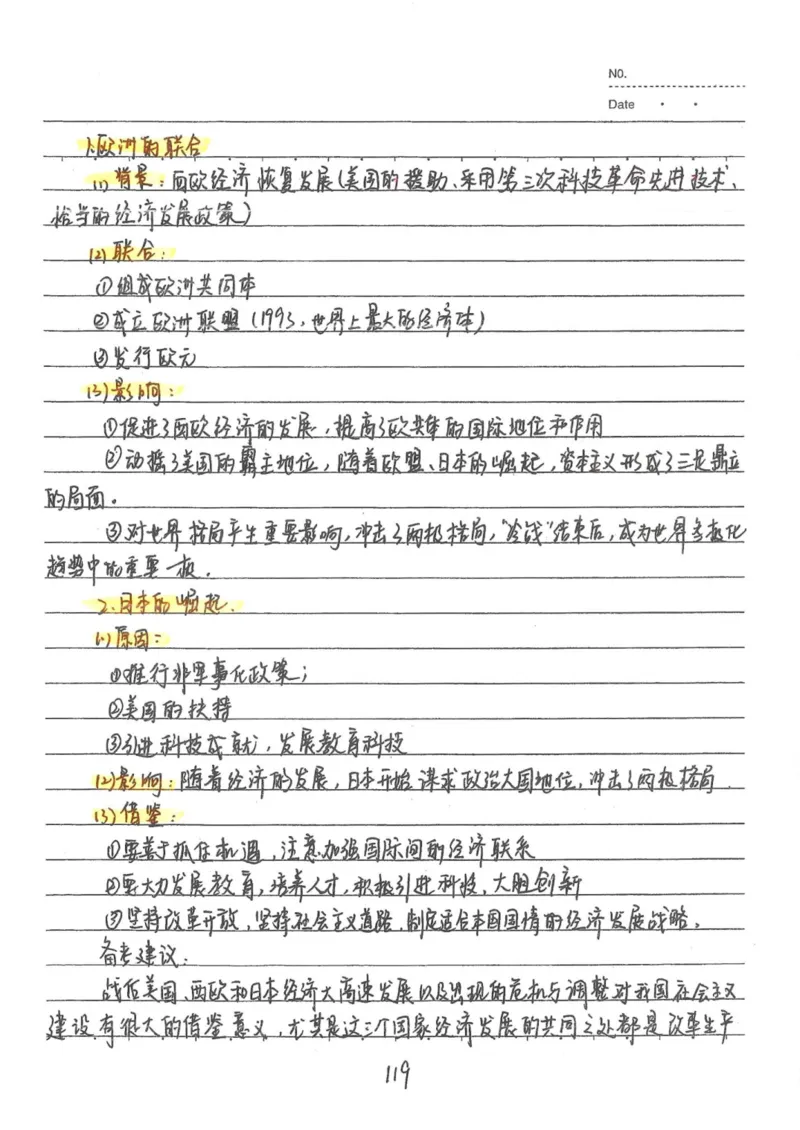 NO.
Date
1.欧洲的联合
(1)背景:西欧经济恢复发展(美国的援助、采用第三次科技革命先进技术、
恰当的经济发展政策)
(2)联合:
①组成欧洲共同体
②成立欧洲联盟(1993,世界上最大的经济体)
③发行欧元
(3)影响:
①促进了西欧经济的发展,提高了欧共体的国际地位和作用
②动摇了美国的霸主地位,随着欧盟、日本的崛起,资本主义形成了三足鼎立
的局面。
③对世界格局产生重要影响,冲击了两极格局,"冷战"结束后,成为世界多极化
趋势中的重要一极.
2.日本的崛起.
(1)原因:
①推行非军事化政策;
②美国的扶持
③引进科技成就,发展教育科技
(2)影响:随着经济的发展,日本开始谋求政治大国地位,冲击了两极格局.
(3)借鉴:
①要善于抓住机遇,注意加强国际间的经济联系
②要大力发展教育,培养人才,积极引进科技,大胆创新
③坚持改革开放,坚持社会主义道路,制定适合本国国情的经济发展战略。
备考建议:
战后美国、西欧和日本经济大高速发展以及出现的危机与调整对我国社会主义
建设有很大的借鉴意义,尤其是这三个国家经济发展的共同之处都是改革生产
119